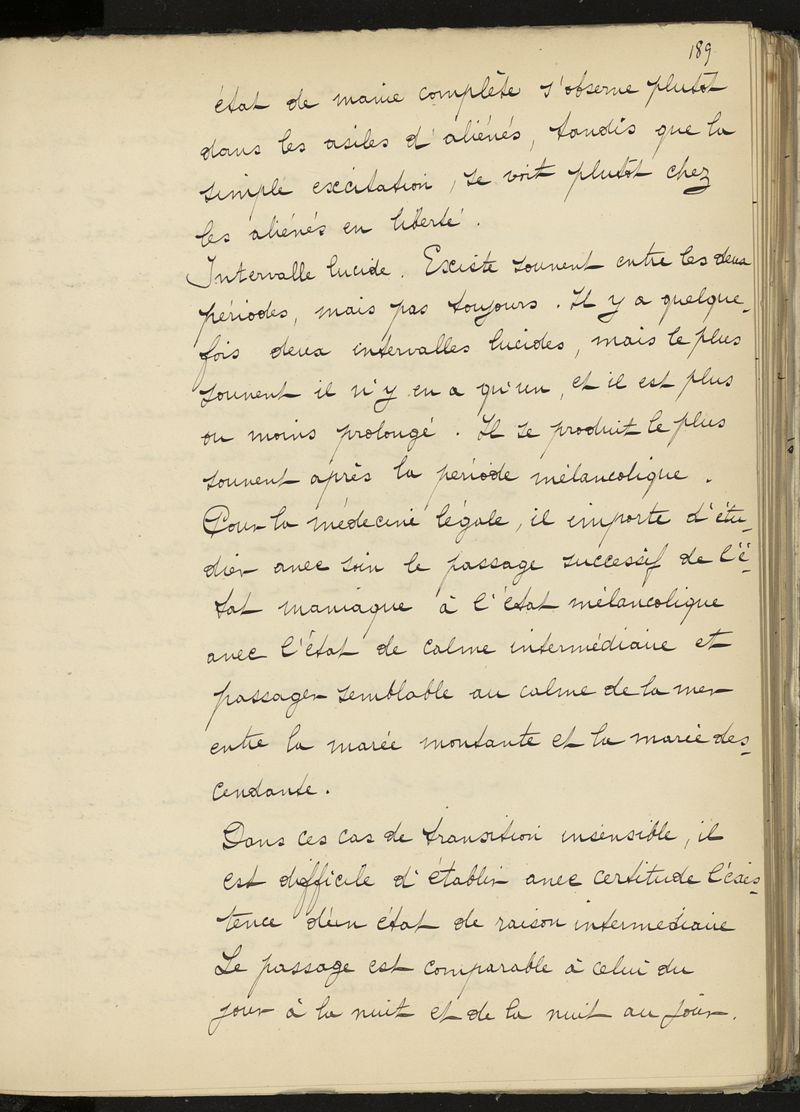 189
état de manie complète s'observe plutôt
dans les asiles d'aliénés, tandis que la
simple excitation, se voit plutôt chez
les aliénés en liberté.
Intervalle lucide. Existe souvent entre les deux
périodes, mais pas toujours. Il y a quelque-
fois deux intervalles lucides, mais le plus
souvent il n'y en a qu'un, et il est plus
ou moins prolongé. Il se produit le plus
souvent après la période mélancolique.
Pour la médecine légale, il importe d'étu-
dier avec soin le passage successif de l'é-
tat maniaque à l'état mélancolique
avec l'état de calme intermédiaire et
passager semblable au calme de la mer
entre la marée montante et la marée des-
cendante.
Dans ces cas de transition insensible, il
est difficile d'établir avec certitude l'exis-
tence d'un état de raison intermediaire
Le passage est comparable à celui du
jour à la nuit et de la nuit au jour.